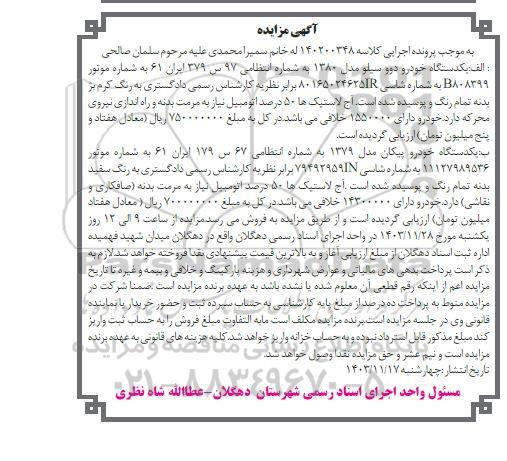 آگهی مزایده
به موجب پرونده اجرایی کلاسه ۱۴۰۲۰۰۳۴۸ له خانم سمیرا محمدی علیه مرحوم سلمان صالحی
: الف:یکدستگاه خودرو دوو سیلو مدل ۱۳۸۰ به شماره انتظامی ۹۷ س ۳۷۹ ایران ۶۱ به شماره موتور
B۸۰۸۳۹۹ به شماره شاسی ۸۰۱۶۵۰۲۴۶۳۵IR برابر نظریه کارشناس رسمی دادگستری به رنگ کرم بژ
بدنه تمام رنگ و پوسیده شده است. آج لاستیک ها ۵۰ درصد اتومبیل نیاز به مرمت بدنه و راه اندازی نیروی
محرکه دارد.خودرو دارای ۱۵۵۰۰۰۰ خلافی می باشد.در کل به مبلغ ۷۵۰۰۰۰۰۰۰ ریال (معادل هفتاد و
پنج میلیون تومان) ارزیابی گردیده است.
ب:یکدستگاه خودرو پیکان مدل ۱۳۷۹ به شماره انتظامی ۶۷ س ۱۷۹ ایران ۶۱ به شماره موتور
۱۱۱۲۷۹۸۹۵۳۶ به شماره شاسی ۷۹۴۹۲۹۵۹IN برابر نظریه کارشناس رسمی دادگستری به رنگ سفید
بدنه تمام رنگ و پوسیده شده است .آج لاستیک ها ۵۰ درصد اتومبیل نیاز به مرمت بدنه (صافکاری و
نقاشی) دارد.خودرو دارای ۱۴۳۰۰۰۰۰ خلافی می باشد.در کل به مبلغ ۷۰۰۰۰۰۰۰۰ ریال ( معادل هفتاد
میلیون تومان) ارزیابی گردیده است و از طریق مزایده به فروش می رسد.مزایده از ساعت ۹ الی ۱۲ روز
یکشنبه مورخ ۱۴۰۳/۱۱/۲۸ در واحد اجرای اسناد رسمی دهگلان واقع در دهگلان میدان شهید فهمیده
اداره ثبت اسناد دهگلان از مبلغ ارزیابی آغاز و به بالاترین قیمت پیشنهادی نقدا فروخته خواهد شد.لازم به
ذکر است پرداخت بدهی های مالیاتی و عوارض شهرداری و هزینه پارکینگ و خلافی و بیمه و غیره تا تاریخ
مزایده اعم از اینکه رقم قطعی آن معلوم شده یا نشده باشد به عهده برنده مزایده است .ضمنا شرکت در
مزایده منوط به پرداخت ده درصد از مبلغ پایه کارشناسی به حساب سپرده ثبت و حضور خریدار یا نماینده
قانونی وی در جلسه مزایده است.برنده مزایده مکلف است مابه التفاوت مبلغ فروش را به حساب ثبت واریز
کند مبلغ مذکور قابل استرداد نبوده و به حساب خزانه واریز خواهد شد.کلیه هزینه های قانونی به عهده برنده
مزایده است و نیم عشر و حق مزایده نقدا وصول خواهد شد.
تاریخ انتشار:چهارشنبه ۱۴۰۳/۱۱/۱۷
مسئول واحد اجرای اسناد رسمی شهرستان دهگلان-عطاالله شاه نظری
۰۲۱-۸۸۳۴۹۶۷۰-۵